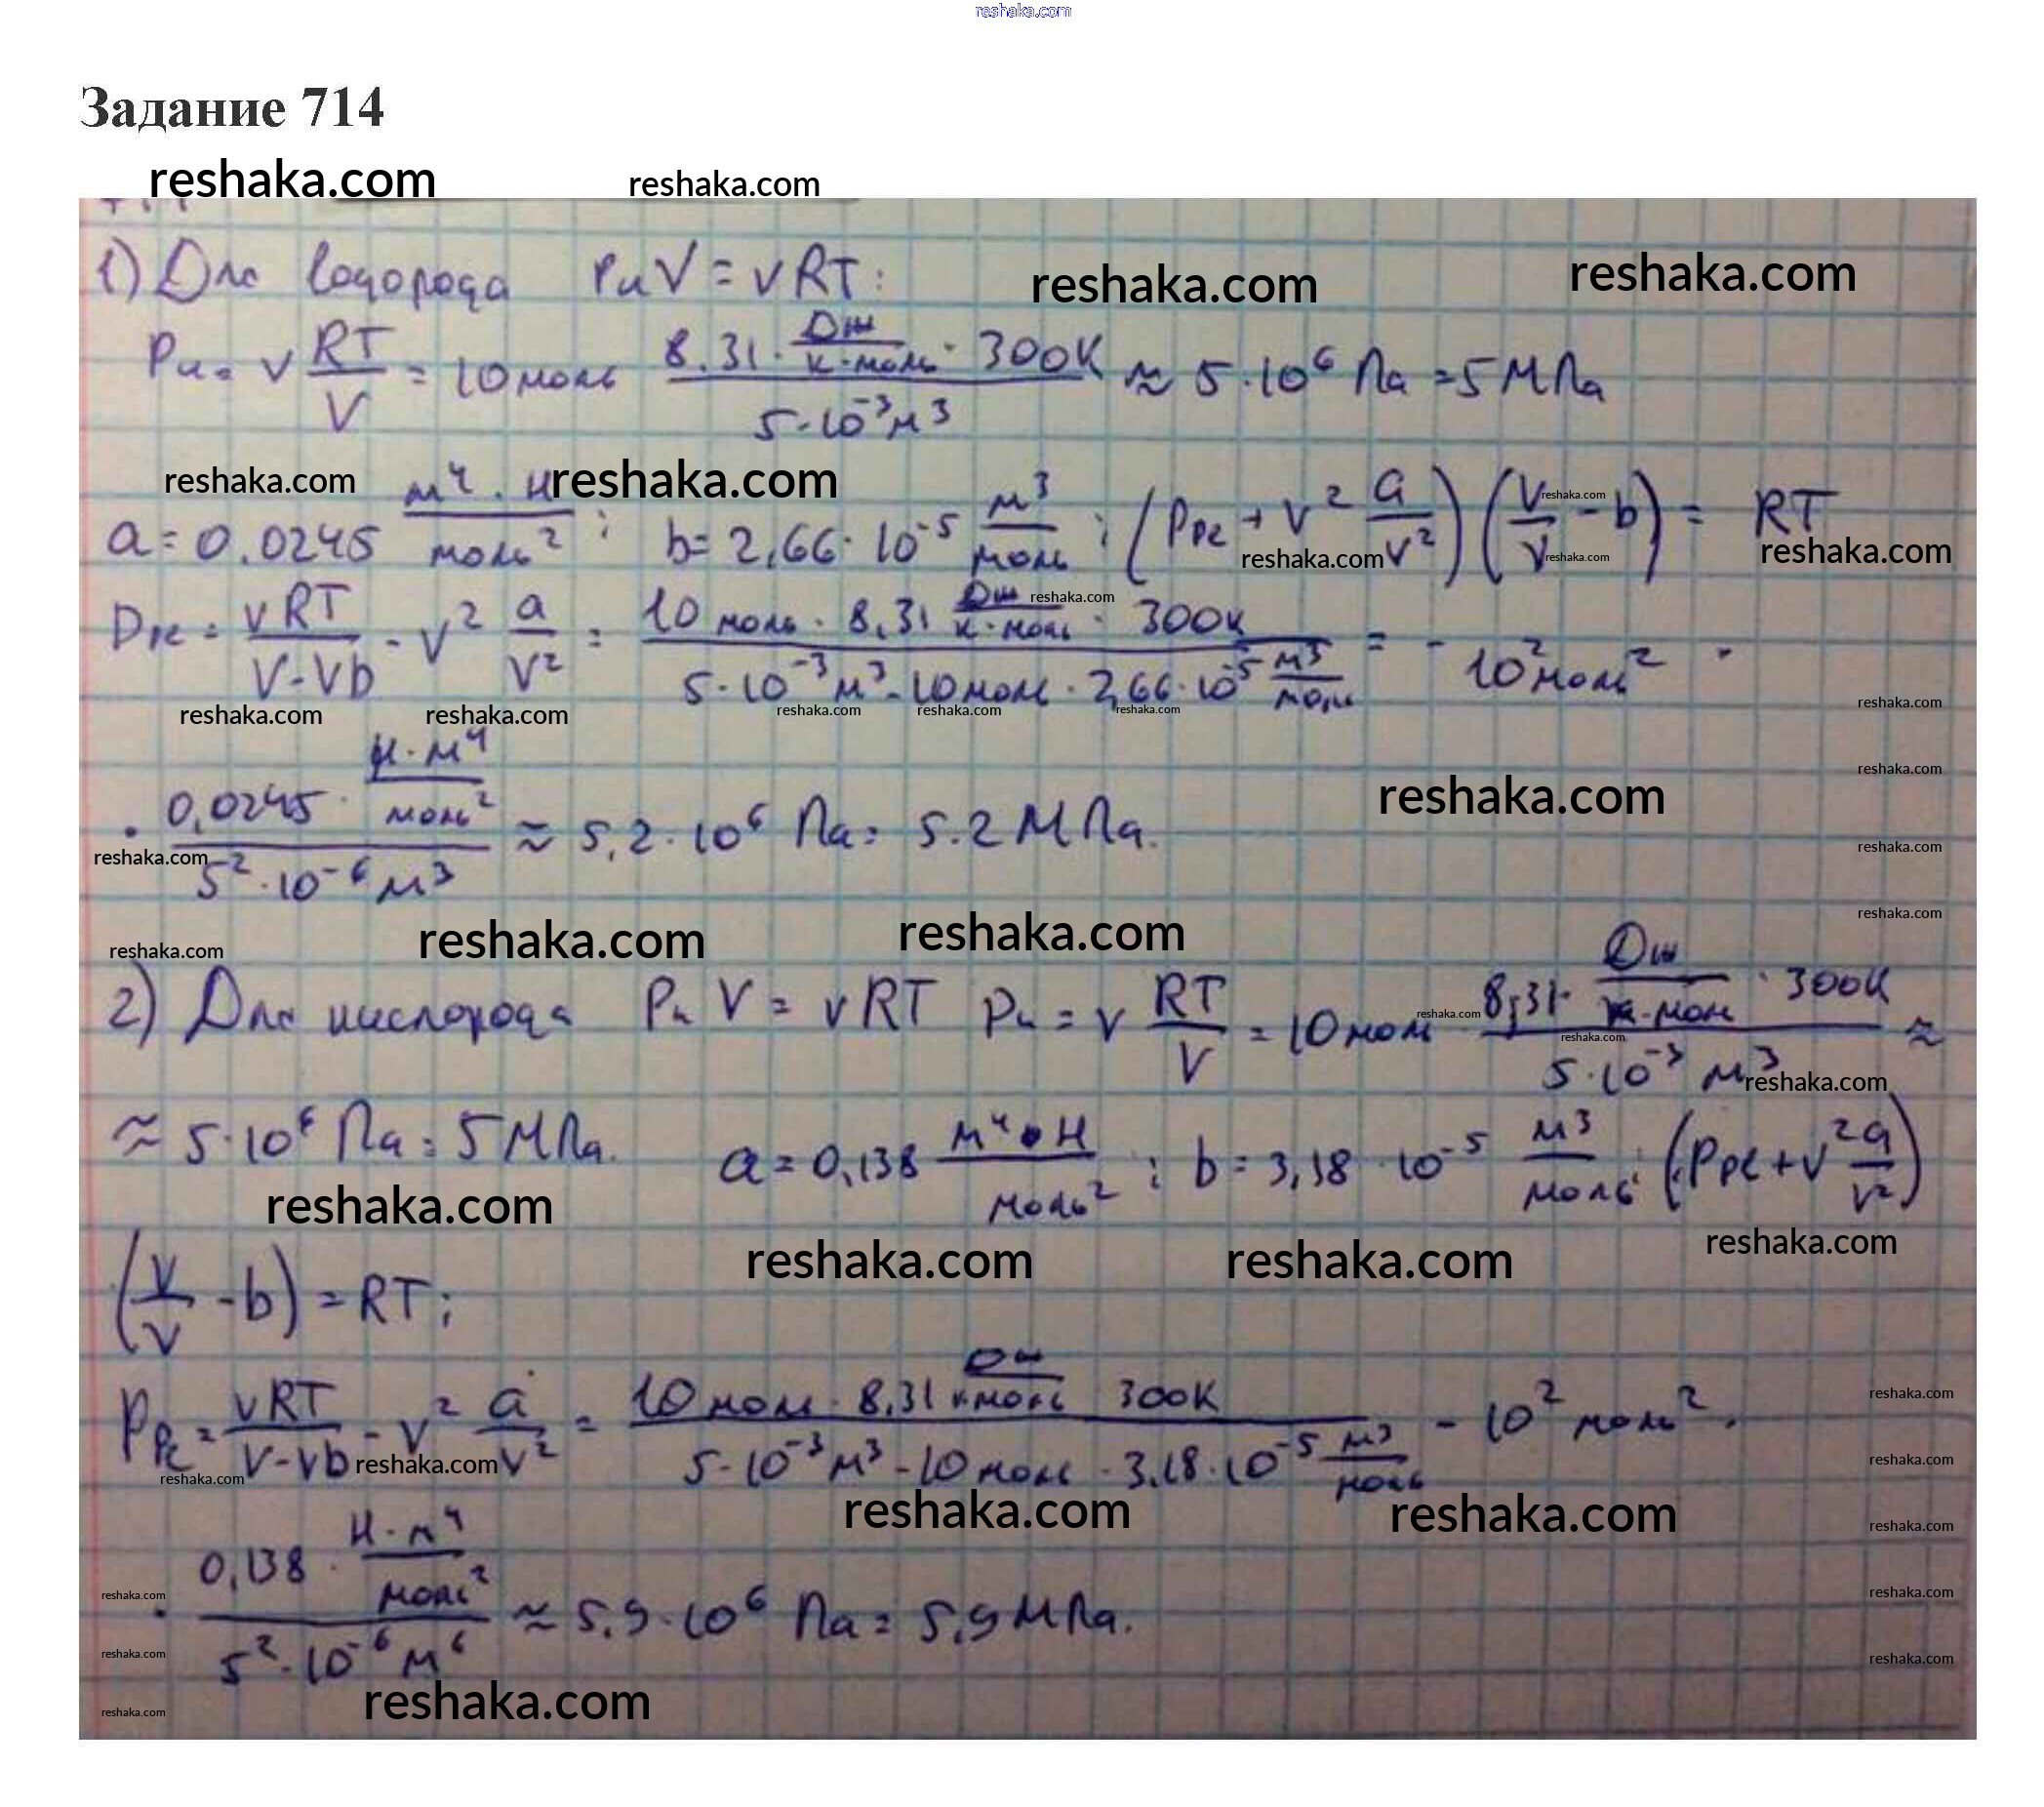 reshaka.com
Задание 714
reshaka.com reshaka.com
1) Для водорода PиV = νRT: reshaka.com reshaka.com
Pи = ν RT/V = 10 моль 8.31 · Дж/К·моль · 300К / 5·10⁻³м³ ≈ 5·10⁶ Па = 5 МПа
reshaka.com reshaka.com
a = 0.0245 м⁴·Н/моль² ; b = 2,66·10⁻⁵ м³/моль ; (Pре + ν² a/V²)(V/ν - b) = RT
reshaka.com reshaka.com reshaka.com reshaka.com
reshaka.com
Pре = νRT/V-νb - ν² a/V² = 10 моль · 8,31 Дж/К·моль · 300К / 5·10⁻³м³ - 10 моль · 2,66·10⁻⁵ м³/моль = - 10² моль² ·
reshaka.com reshaka.com reshaka.com reshaka.com reshaka.com reshaka.com
reshaka.com
reshaka.com
· 0,0245 · Н·м⁴/моль² / 5²·10⁻⁶ м³ ≈ 5,2·10⁶ Па = 5.2 МПа.
reshaka.com reshaka.com
reshaka.com reshaka.com reshaka.com reshaka.com
2) Для кислорода Pи V = νRT Pи = ν RT/V = 10 моль 8,31· Дж/К·моль · 300К / 5·10⁻³ м³ ≈
reshaka.com reshaka.com reshaka.com
≈ 5·10⁶ Па = 5 МПа. a = 0,138 м⁴·Н/моль² ; b = 3,18·10⁻⁵ м³/моль ; (Pре + ν² a/V²)
reshaka.com reshaka.com reshaka.com reshaka.com
(V/ν - b) = RT;
Pре = νRT/V-νb - ν² a/V² = 10 моль · 8,31 Дж/К·моль 300К / 5·10⁻³м³ - 10 моль · 3,18·10⁻⁵ м³/моль - 10² моль² ·
reshaka.com
reshaka.com reshaka.com reshaka.com
reshaka.com reshaka.com reshaka.com
· 0,138 · Н·м⁴/моль² / 5²·10⁻⁶ м⁶ ≈ 5,9·10⁶ Па = 5,9 МПа.
reshaka.com reshaka.com
reshaka.com reshaka.com
reshaka.com reshaka.com